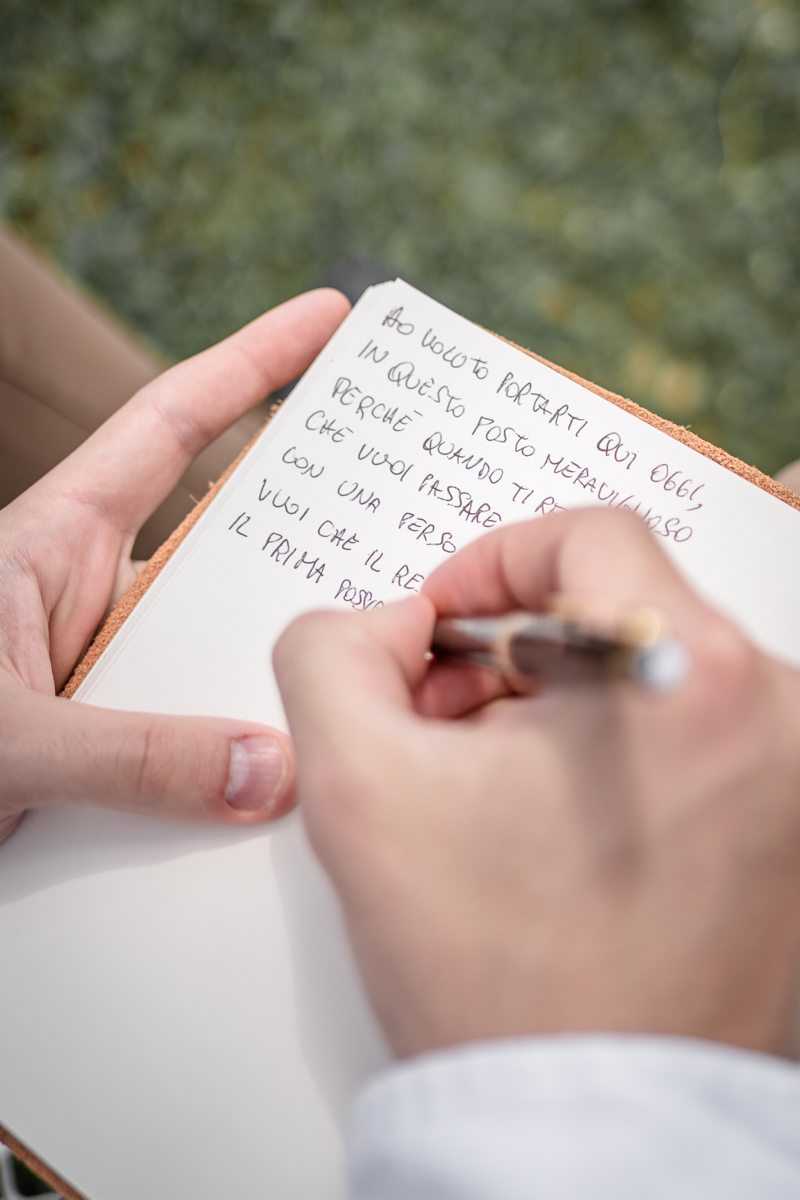 HO VOLUTO PORTARTI QUI OGGI,
IN QUESTO POSTO MERAVIGLIOSO
PERCHÉ QUANDO TI RE
CHE VUOI PASSARE
CON UNA PERSO
VUOI CHE IL RE
IL PRIMA POSSI